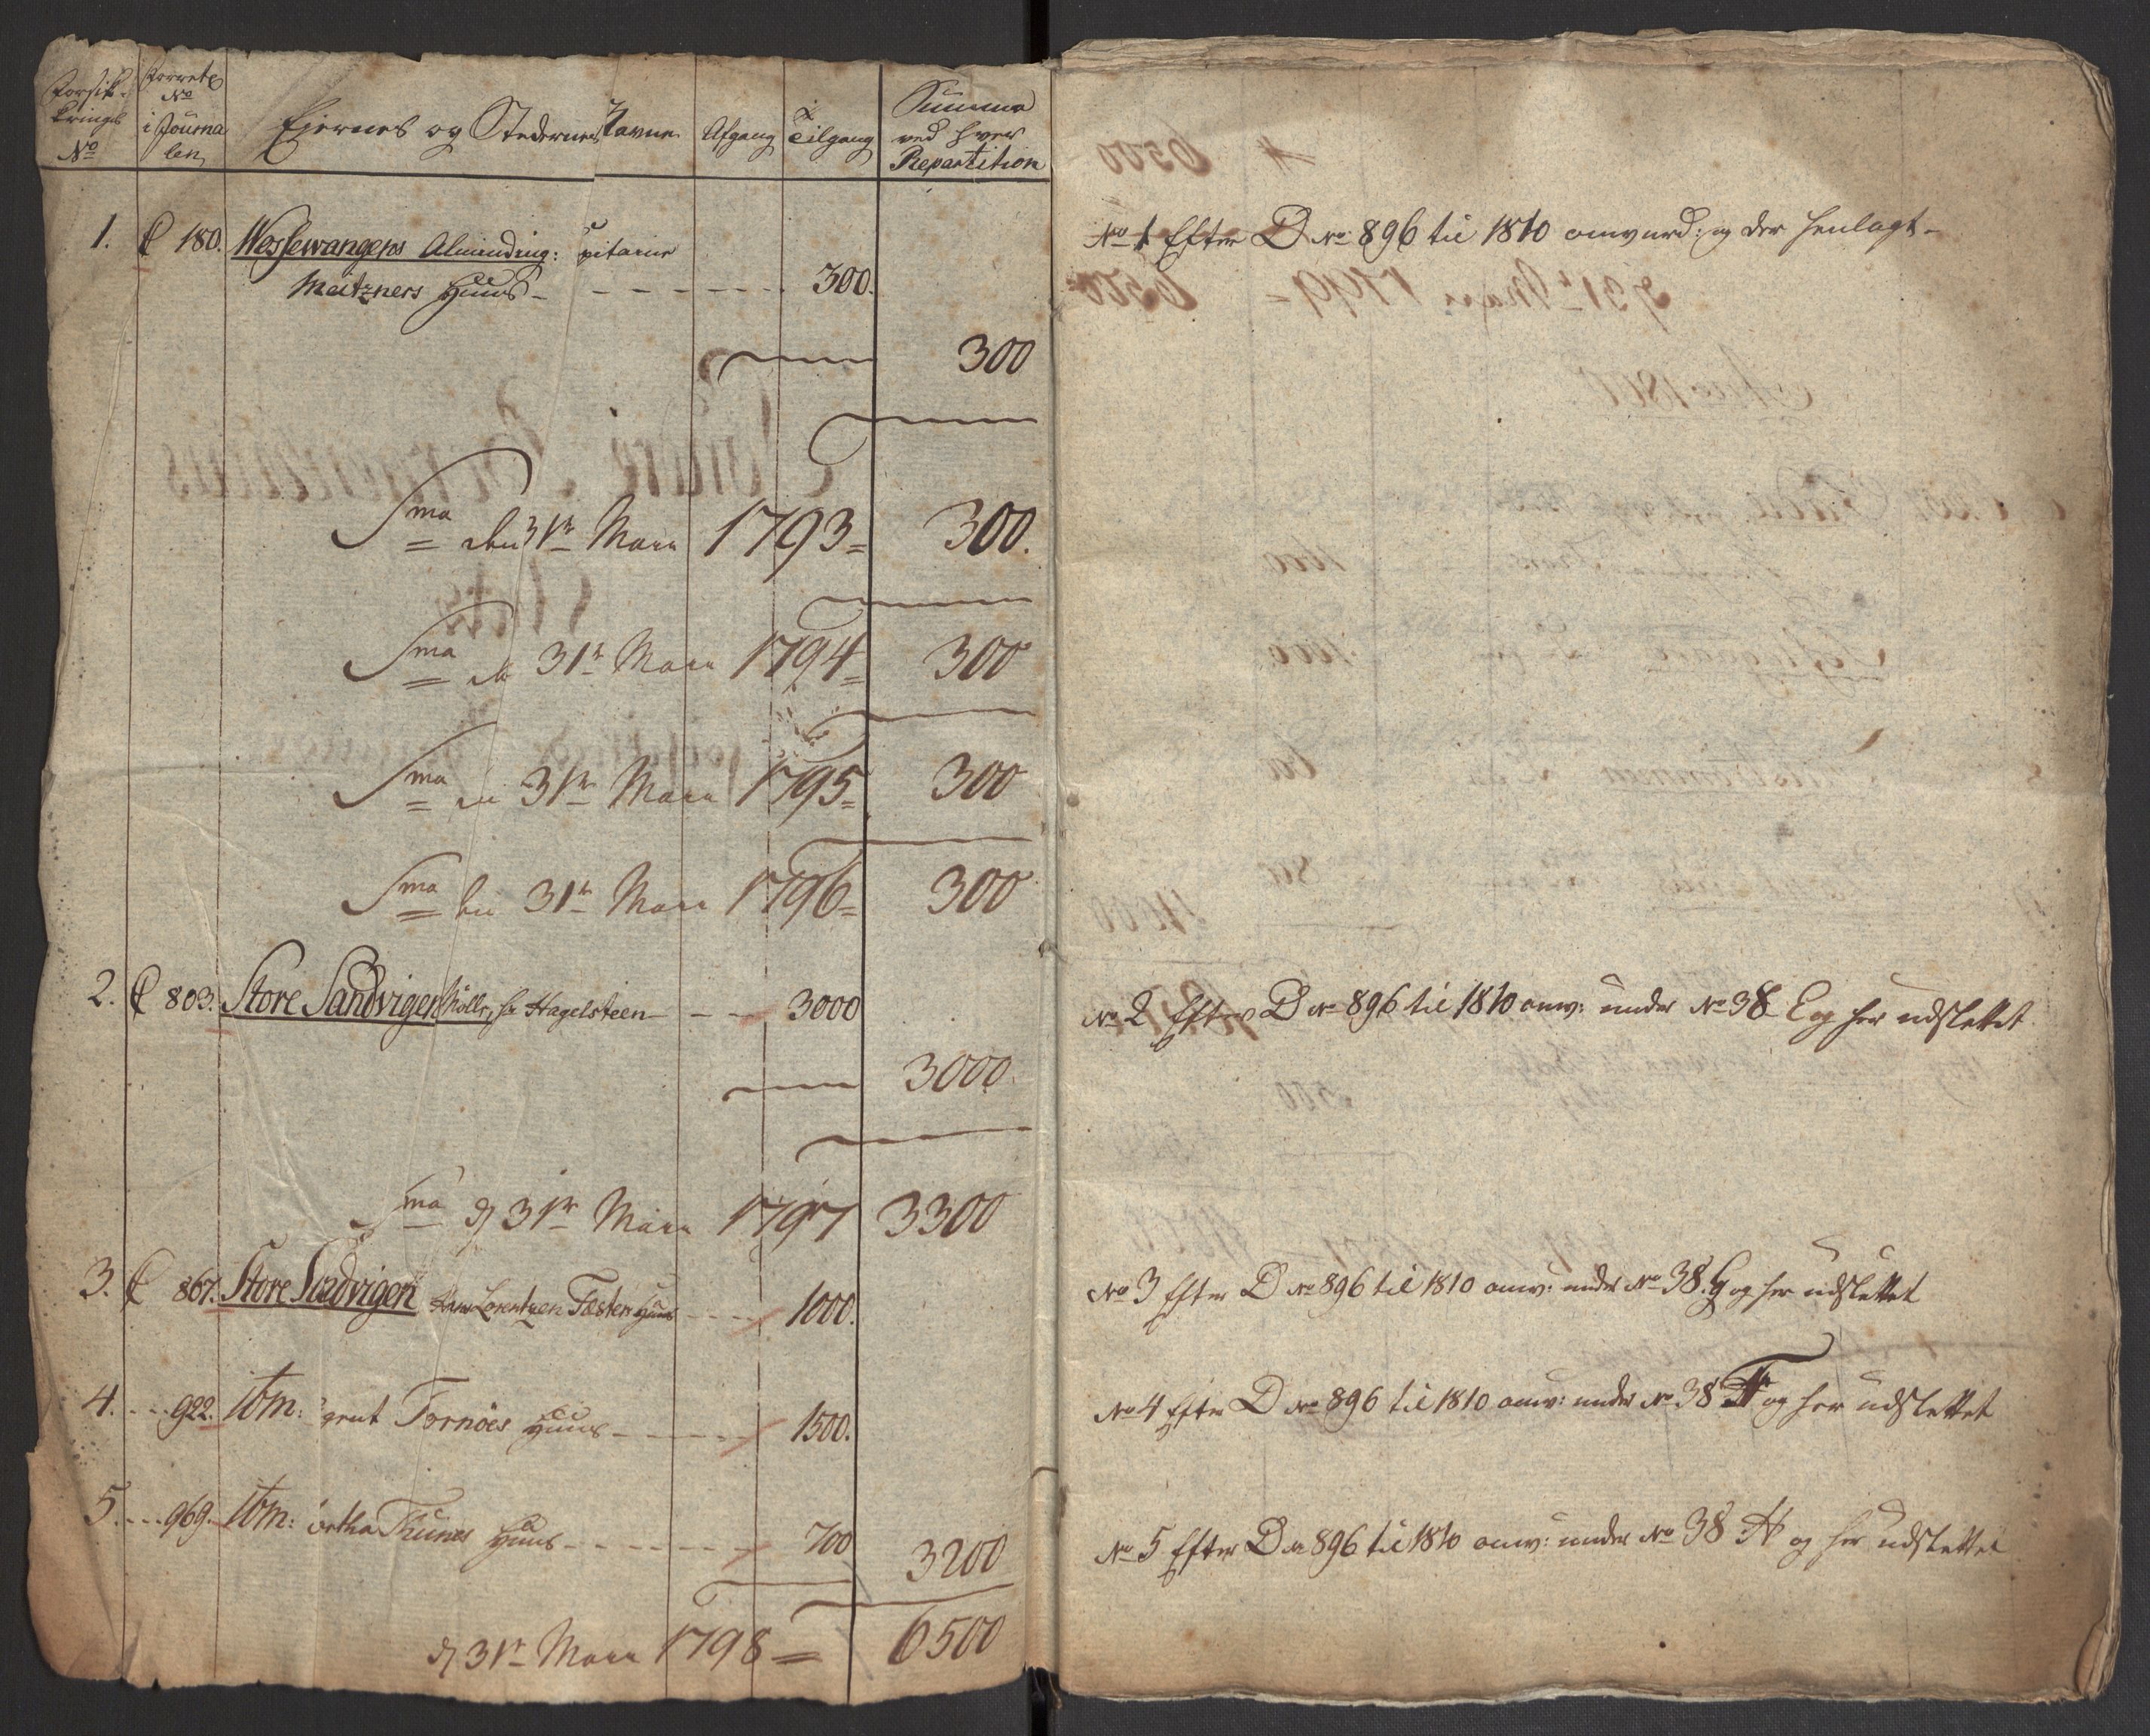 Forsik-
krings
No
Forrets
No
i Journa
len
Ejernes og Stedernes Navne
Afgang
Tilgang
Summa
ved hver
Repartition
1. 180. Wessewangens Alminding: pitaine
Meitzners Huus - 300.
300
Sma den 31te Marti 1793 = 300.
Sma 31te Marti 1794 = 300
Sma 31te Marti 1795 = 300
Sma 31te Marti 1796 = 300
2. 803. Store Sandvigen Hagelsteen 3000
3000.
Sma d 31te Marti 1797 3300
3. 867. Store Sandvigen Lorentzen Fæsters Huus 1000.
4. 922. Ibm: gent Tornöes Huus 1500.
5. 969. Ibm: Thunes Huus 700
3200
d 31te Marti 1798 = 6500
No 1 Efter D No 896 til 1810 omvurd: og der henlagt -
No 2 Efter D No 896 til 1810 omv: under No 38 E og her udslettet
No 3 Efter D No 896 til 1810 omv: under No 38. G og her udslettet
No 4 Efter D No 896 til 1810 omv: under No 38 F og her udslettet
No 5 Efter D No 896 til 1810 omv: under No 38 H og her udslettet